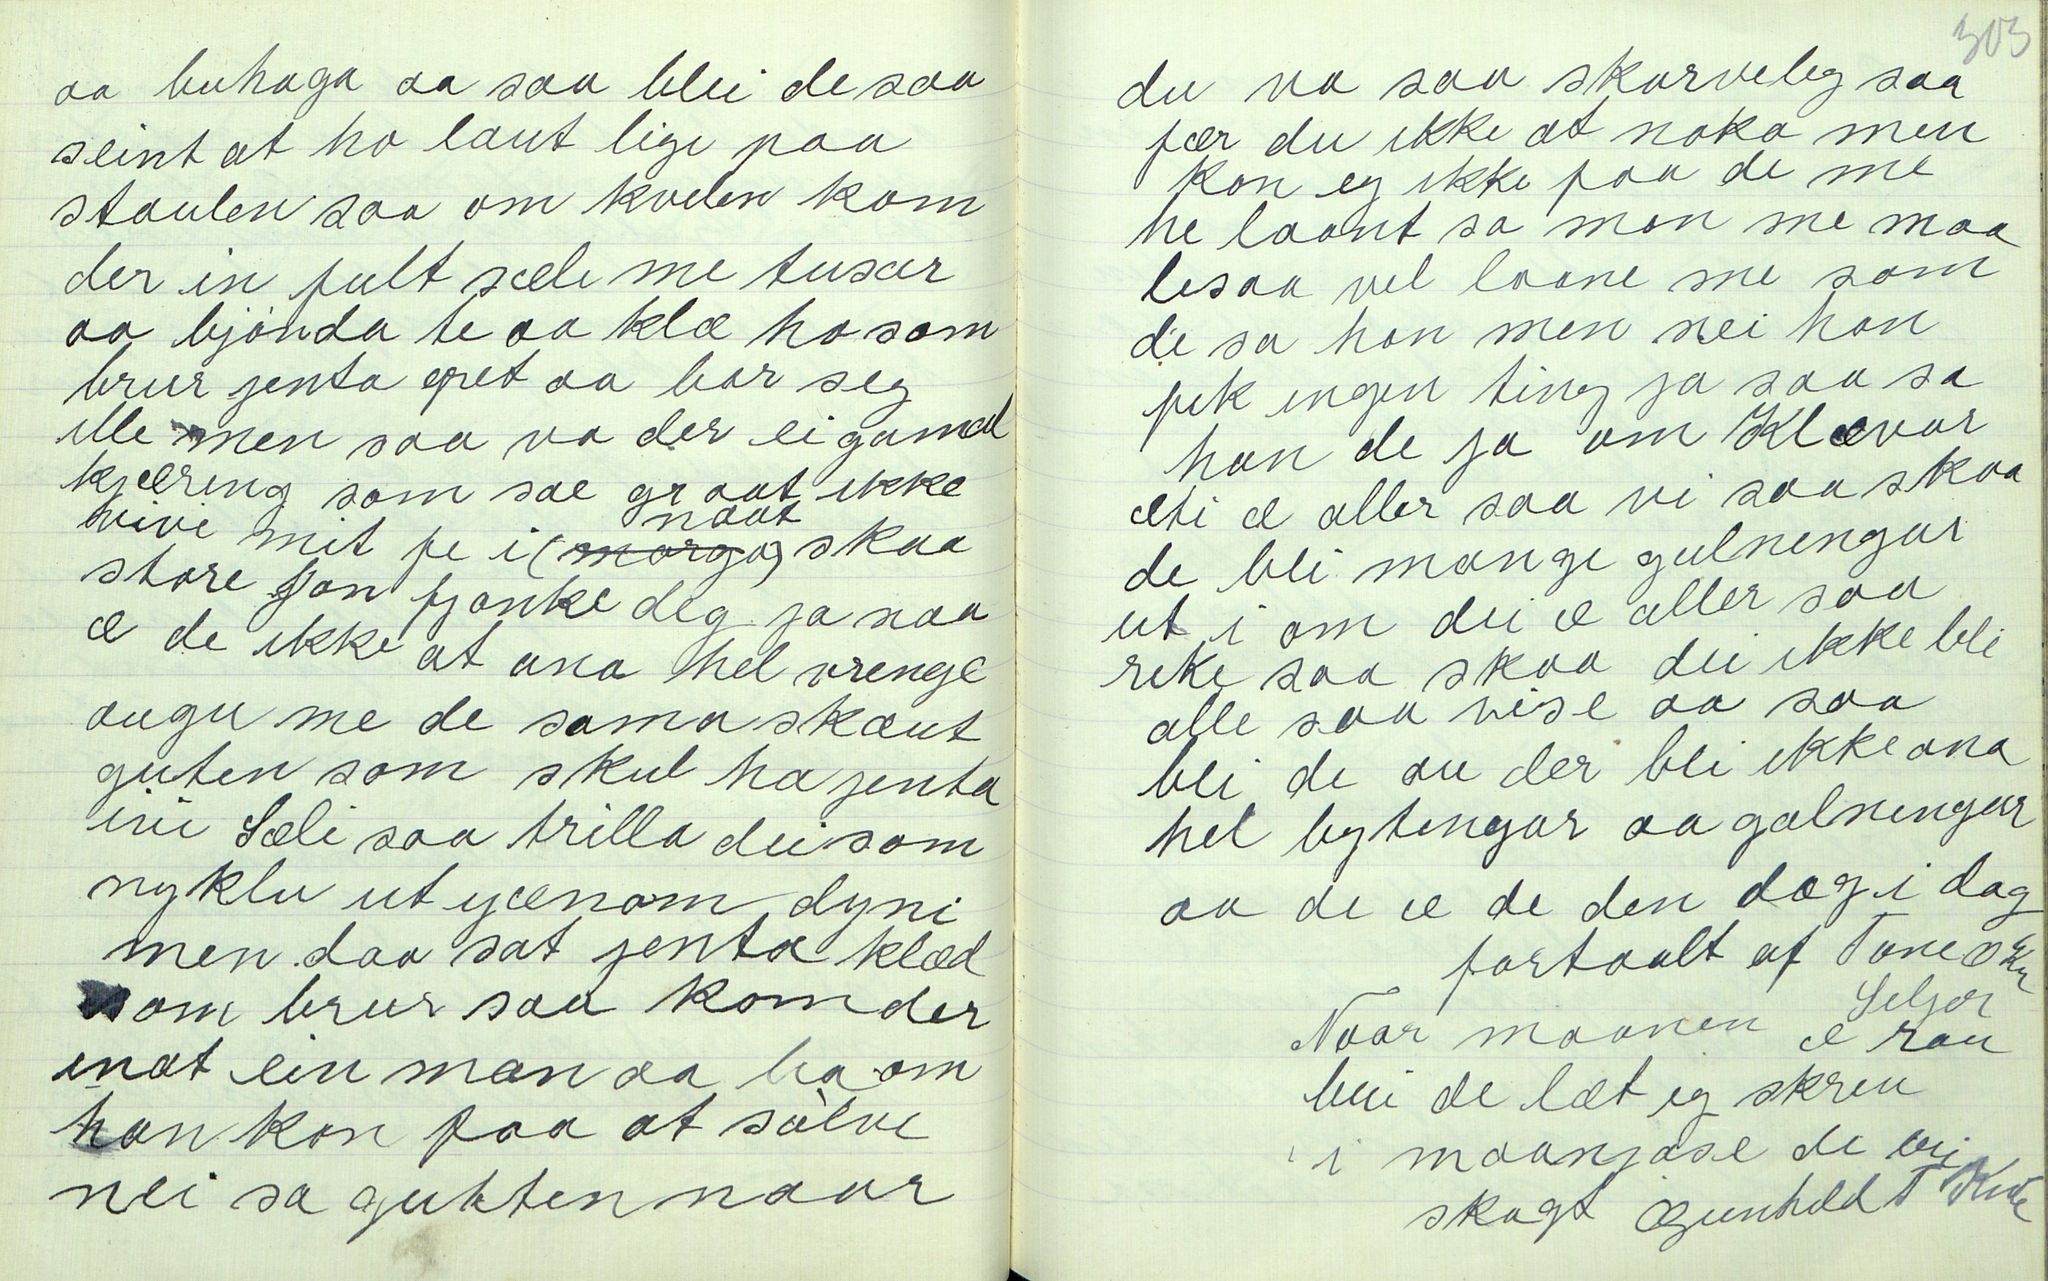 aa buhaga aa saa blei de saa
seint at ho laut lige paa
staulen saa om kvelen kom
der in fult sæle me tusar
aa bjönda te aa klæ ho som
brur jenta gret aa bar seg
ille men saa va der ei gamal
kjæreng som sae graat ikke
vivi mit fe i (morga) naat skaa
store Jon fjonke deg ja naa
æ de ikke at ana hel vrenge
augu me de sama skaut
guten som skul ha jenta
ini Sæli saa trilla dei som
nyklu ut gjænom dyni
men daa sat jenta klæd
som brur saa kom der
inat ein man aa ba om
han kon faa at sölve
nei sa gutten naar
303
du va saa skarveleg saa
fær du ikke at noka men
kon eg ikke faa de me
he laant sa mon me maa
lesaa vel laane me som
de sa han men nei han
fek ingen ting ja saa sa
han de ja om Klævar
æti æ aller saa vi saa skaa
de bli mange galnengar
ut i om dei æ aller saa
rike saa skaa dei ikke bli
alle saa vise aa saa
bli de au der bli ikke ana
hel bytengar aa galnengar
aa de æ de den dag i dag
fortaalt af Tone
Seljor
Naar maanen æ rau
bli de læt eg skreu
i maanjase de
skagt Gunhild T Kive